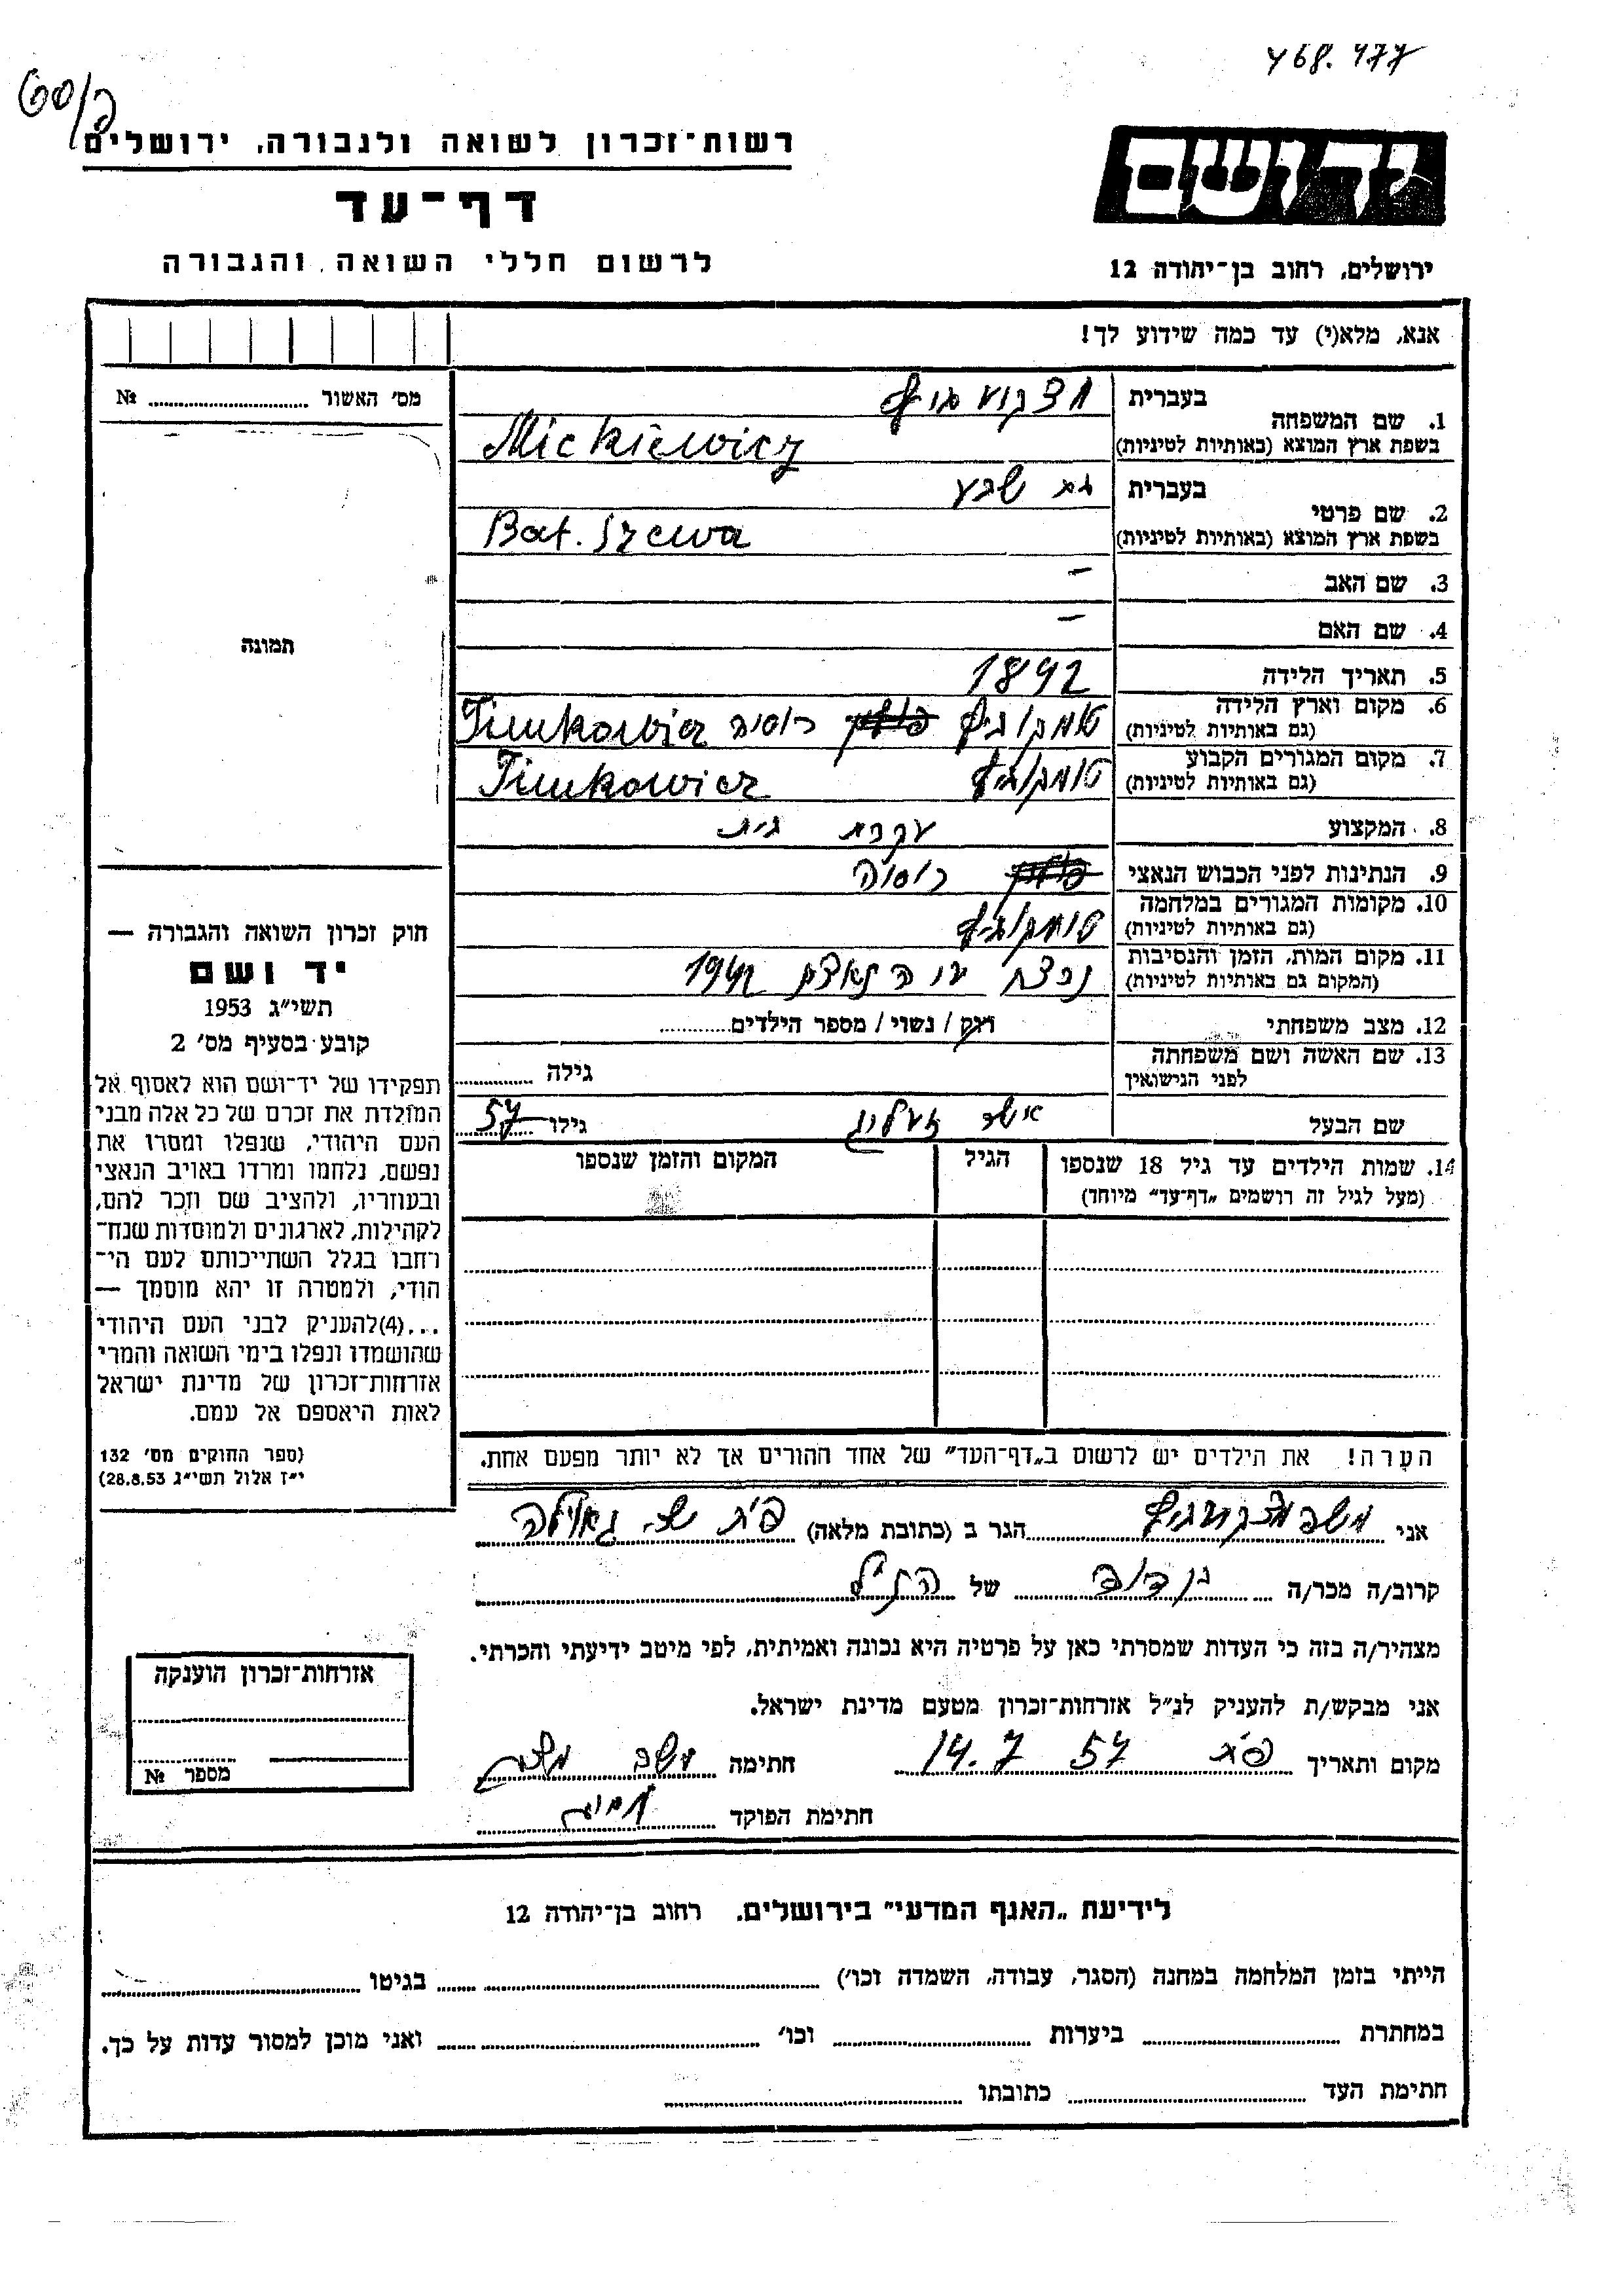 468.477
60/ק
רשות־זכרון לשואה ולגבורה, ירושלים
יד ושם
דף־עד
לרשום חללי השואה והגבורה
ירושלים, רחוב בן־יהודה 12
אנא, מלא(י) עד כמה שידוע לך!
מס׳ האשור № 
תמונה
1. שם המשפחה
בעברית
בשפת ארץ המוצא (באותיות לטיניות) Mickiewicz
2. שם פרטי
בעברית בת שבע
בשפת ארץ המוצא (באותיות לטיניות) Bat. Szewa
3. שם האב –
4. שם האם –
5. תאריך הלידה 1892
6. מקום וארץ הלידה
(גם באותיות לטיניות) טימקוביץ רוסיה Timkowicz
7. מקום המגורים הקבוע
(גם באותיות לטיניות) טימקוביץ Timkowicz
8. המקצוע עקרת בית
9. הנתינות לפני הכבוש הנאצי רוסיה
10. מקומות המגורים במלחמה
(גם באותיות לטיניות) טימקוביץ
11. מקום המות, הזמן והנסיבות
(המקום גם באותיות לטיניות) נרצח ע״י הנאצים 1942
12. מצב משפחתי רוק / נשוי / מספר הילדים
13. שם האשה ושם משפחתה
לפני הנישואין גילה
שם הבעל אשר זעליג גילו 57
14. שמות הילדים עד גיל 18 שנספו
(מעל לגיל זה רושמים „דף־עד״ מיוחד)
הגיל
המקום והזמן שנספו
חוק זכרון השואה והגבורה —
יד ושם
תשי״ג 1953
קובע בסעיף מס׳ 2
תפקידו של יד־ושם הוא לאסוף אל
המולדת את זכרם של כל אלה מבני
העם היהודי, שנפלו ומסרו את
נפשם, נלחמו ומרדו באויב הנאצי
ובעוזריו, ולהציב שם וזכר להם,
לקהילות, לארגונים ולמוסדות שנח־
רחבו בגלל השתייכותם לעם הי־
הודי, ולמטרה זו יהא מוסמך —
...(4)להעניק לבני העם היהודי
שהושמדו ונפלו בימי השואה והמרי
אזרחות־זכרון של מדינת ישראל
לאות היאספם אל עמם.
(ספר החוקים מס׳ 132
י״ז אלול תשי״ג 28.8.53)
הערה! את הילדים יש לרשום ב„דף־העד״ של אחד ההורים אך לא יותר מפעם אחת.
אני משה הגר ב (כתובת מלאה) פ״ת שכ׳ גאולה
קרוב/ה מכר/ה בן דוד של הנ״ל
מצהיר/ה בזה כי העדות שמסרתי כאן על פרטיה היא נכונה ואמיתית, לפי מיטב ידיעתי והכרתי.
אני מבקש/ת להעניק לנ״ל אזרחות־זכרון מטעם מדינת ישראל.
מקום ותאריך פ״ת 14.7 57 חתימה
חתימת הפוקד
אזרחות־זכרון הוענקה
מספר №
לידיעת „האגף המדעי״ בירושלים. רחוב בן־יהודה 12
הייתי בזמן המלחמה במחנה (הסגר, עבודה, השמדה וכו׳) בגיטו
במחתרת ביערות וכו׳ ואני מוכן למסור עדות על כך.
חתימת העד כתובתו